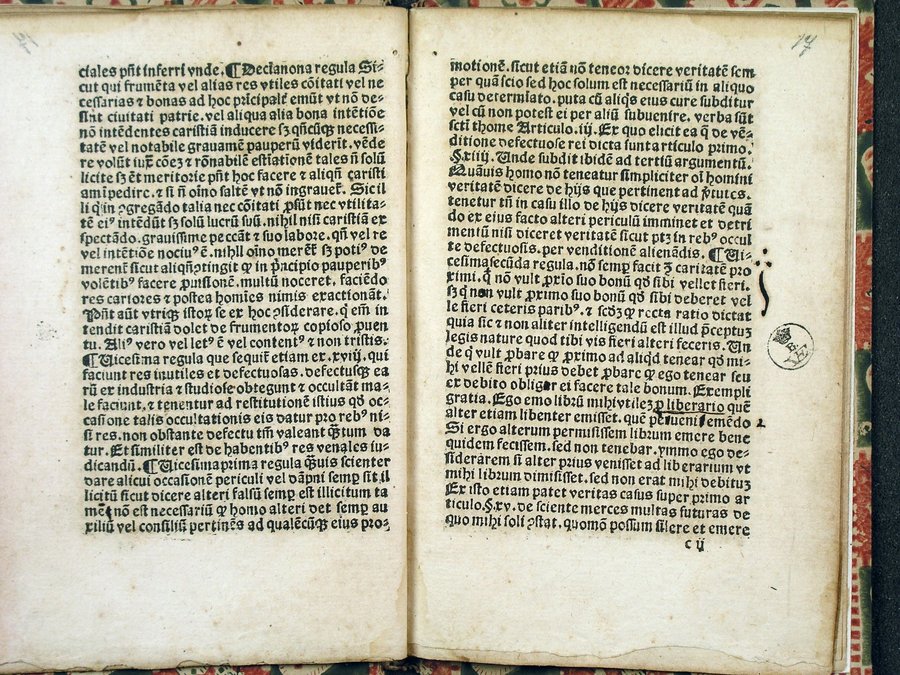 ciales pñt inferri vnde. ¶ Decianona regula Si-
cut qui frumēta vel alias res vtiles cōitati vel ne
cessarias ⁊ bonas ad hoc prīcipałr emūt vt nō de-
sint ciuitati patrie. vel aliqua alia bona intētiōe
nō intēdentes caristiā inducere sꝫ qñcūqꝫ necessi-
tatē vel notabile grauamē pauperū viderīt. vēde
re volūt iuxͣ cōeꝫ ⁊ rōnabilē estīationē tales nō solū
licite sꝫ et̄ meritorie pñt hoc facere ⁊ aliqñ caristi
am īpedire. ⁊ si nō oīno saltē vt nō ingrauet᷑. Sic il
li qͥ in ꝯgregādo talia nec cōitati ꝓsūt nec vtilita-
tē eiꝰ intēdūt sꝫ solū lucrū suū. nihil nisi caristiā ex
spectādo. grauissime peccāt ⁊ suo labore. qñ vel re
vel intētiōe nociuꝰ ē. nihil oīno meret᷑ sꝫ potiꝰ de
merent᷑ sicut aliqñ ꝯtingit ꝙ in p̄ncipio pauperibꝰ
volētibꝰ facere ꝓuisionē. multū noceret. faciēdo
res cariores ⁊ postea homīes nimis exactionāt.
Pñt aūt vtriqꝫ istoꝝ se ex hoc ꝯsiderare. ꝙ em̄ in
tendit caristiā dolet de frumentoꝝ copioso ꝓuen
tu. Aliꝰ vero vel letꝰ ē vel contentꝰ ⁊ non tristis.
¶ Vicesima regula que sequit᷑ etiam ex .xviij. qui
faciunt res inutiles et defectuosas. defectusqꝫ ea
rū ex industria ⁊ studiose obtegunt ⁊ occultāt ma-
le faciunt, ⁊ tenentur ad restitutionē istius qd̄ oc-
casione talis occultationis eis datur pro rebꝰ ni-
si res. non obstante defectu tm̄ valeant q̄ntum da
tur. Et similiter est de habentibꝰ res venales iu-
dicandū. ¶ Vicesimaprima regula Q̄uis scienter
dare alicui occasionē periculi vel dāpni semꝑ sit il
licitū sicut dicere alteri falsū semꝑ est illicitum ta
mē nō est necessariū ꝙ homo alteri det semꝑ au
xiliū vel consiliū pertinēs ad qualēcūqꝫ eius pro-
motionē. sicut etiā nō teneor dicere veritatē sem
per quā scio sed hoc solum est necessariū in aliquo
casu determīato. puta cū aliqͥs eius cure subditur
vel cū non potest ei per aliū subuenire. verba sūt
scti thome Articulo .iij. Ex quo elicit ea q̄ de vē-
ditione defectuose rei dicta sunt articulo primo.
§.xiiij. Unde subdit ibidē ad tertiū argumentū.
Quāuis homo nō teneatur simpliciter oī homini
veritatē dicere de hijs que pertinent ad v̄tutes.
tenetur tn̄ in casu illo de hijs dicere veritatē quā
do ex eius facto alteri periculū imminet et detri
mentū nisi diceret veritatē sicut ptꝫ in rebꝰ occul
te defectuosis. per venditionē alienādis. ¶ Ui-
cesimasecūda regula. nō semꝑ facit ꝯͣ caritatē pro
ximi. qͥ nō vult ꝓxīo suo bonū qd̄ sibi vellet fieri.
sꝫ qͥ non vult ꝓximo suo bonū qd̄ sibi deberet vel
le fieri ceteris paribꝰ. ⁊ scd̄ꝫ ꝙ recta ratio dictat
quia sic ⁊ non aliter intelligendū est illud p̄ceptuꝫ
legis nature quod tibi vis fieri alteri feceris. Un
de qͥ vult ꝓbare ꝙ ꝓximo ad aliqd̄ tenear qd̄ mi-
hi vellē fieri prius debet ꝓbare ꝙ ego tenear seu
ex debito obligor ei facere tale bonum. Exempli
gratia. Ego emo librū mihi vtileꝫ ꝓ liberario quē
alter etiam libenter emisset. quē ꝑueni emēdo
Si ergo alterum permisissem librum emere bene
quidem fecissem. sed non tenebar. ymmo ego de-
siderarem si alter prius venisset ad liberarium vt
mihi librum dimisisset. sed non erat mihi debituꝫ
Ex isto etiam patet veritas casus super primo ar
ticulo.§.xv. de sciente merces multas futuras de
quo mihi soli ꝯstat. quomō possum silere et emere
c ij